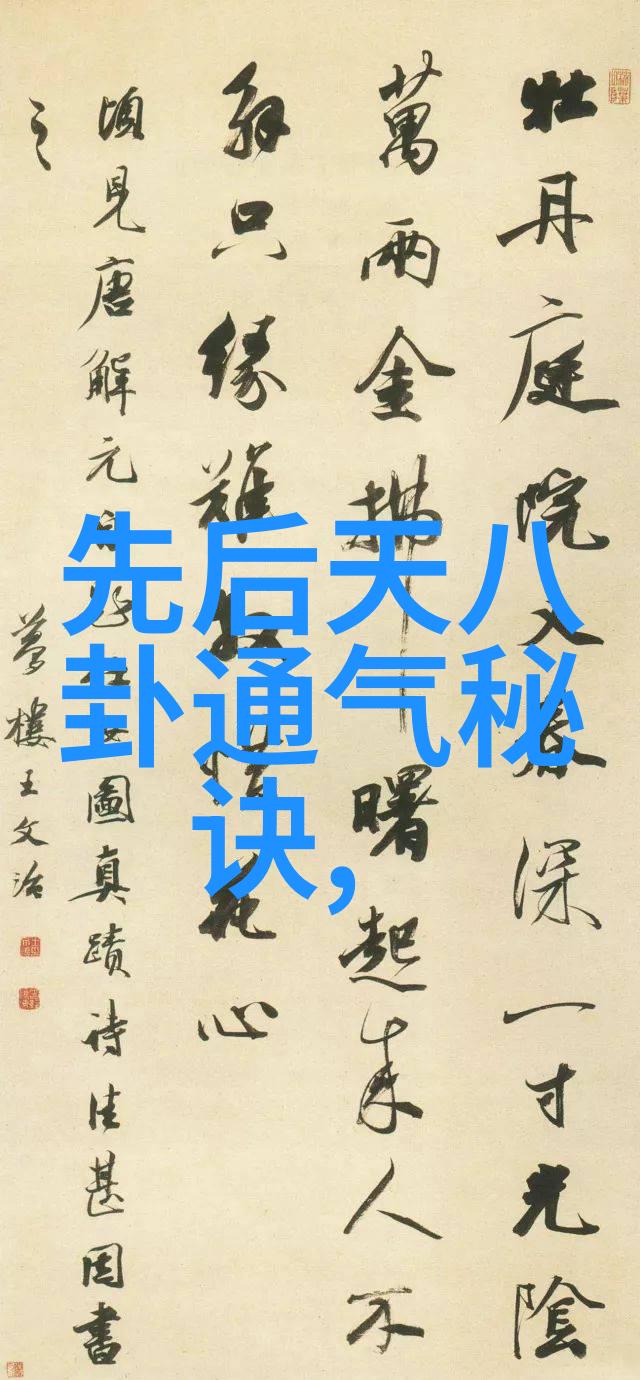 先后天八
卦通气秘
诀,
牡丹庭院又春深一寸光陰
萬兩金拂曙起來人不
解只緣難放惜花心
頃見唐解元圖真蹟詩佳甚因書
之
夢樓王文治